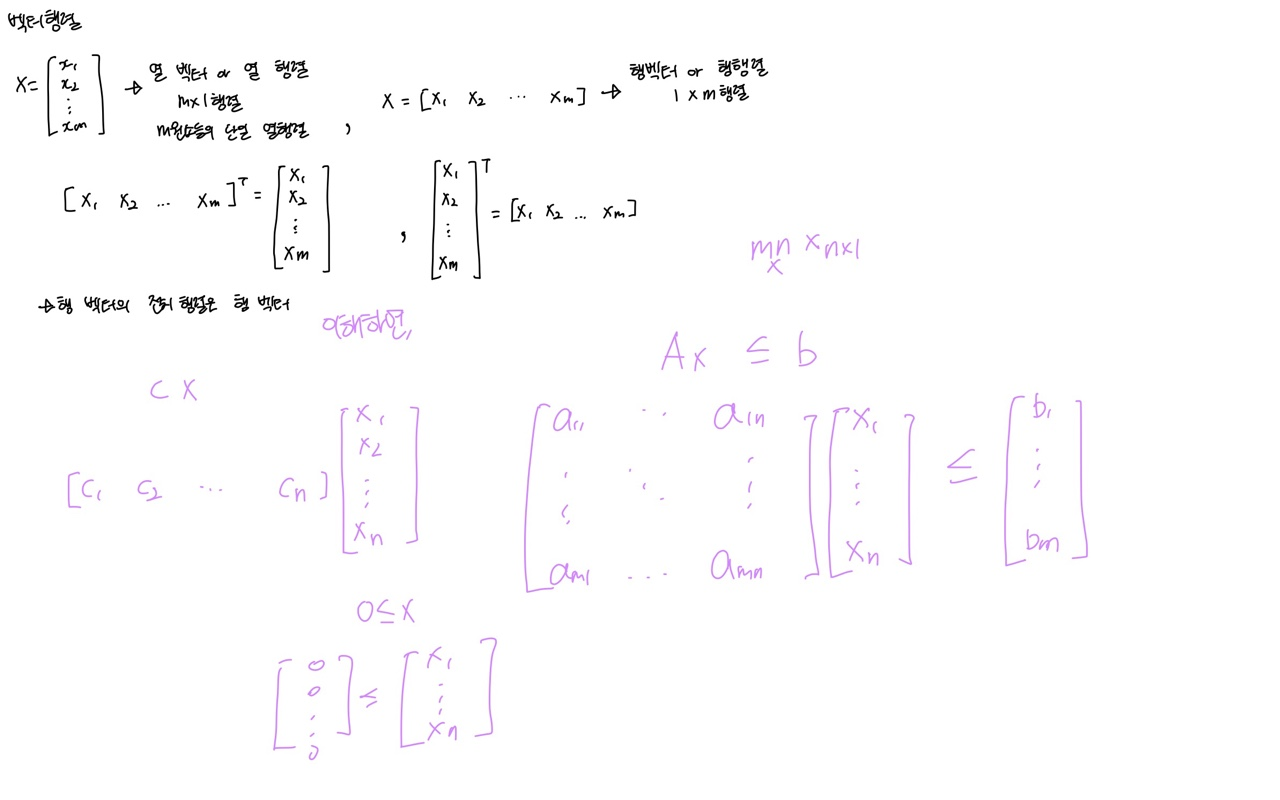 벡터행렬
X = [x₁ x₂ ⋮ xₘ] → 열 벡터 or 열 행렬
m×1 행렬
m원소들의 단일 열행렬 ,
X = [x₁ x₂ ⋯ xₘ] → 행벡터 or 행행렬
1 × m 행렬
[x₁ x₂ ⋯ xₘ]ᵀ = [x₁ x₂ ⋮ xₘ] , [x₁ x₂ ⋮ xₘ]ᵀ = [x₁ x₂ ⋯ xₘ]
mn x xₙₓ₁
→ 행 벡터의 전치 행렬은 형 벡터
이해하면,
Ax ≤ b
C X
[c₁ c₂ ⋯ cₙ] [x₁ x₂ ⋮ xₙ]
[a₁₁ ⋯ a₁ₙ ⋮ ⋱ ⋮ aₘ₁ ⋯ aₘₙ] [x₁ ⋮ xₙ] ≤ [b₁ ⋮ bₘ]
0 ≤ X
[0 0 ⋮ 0] ≤ [x₁ ⋮ xₙ]